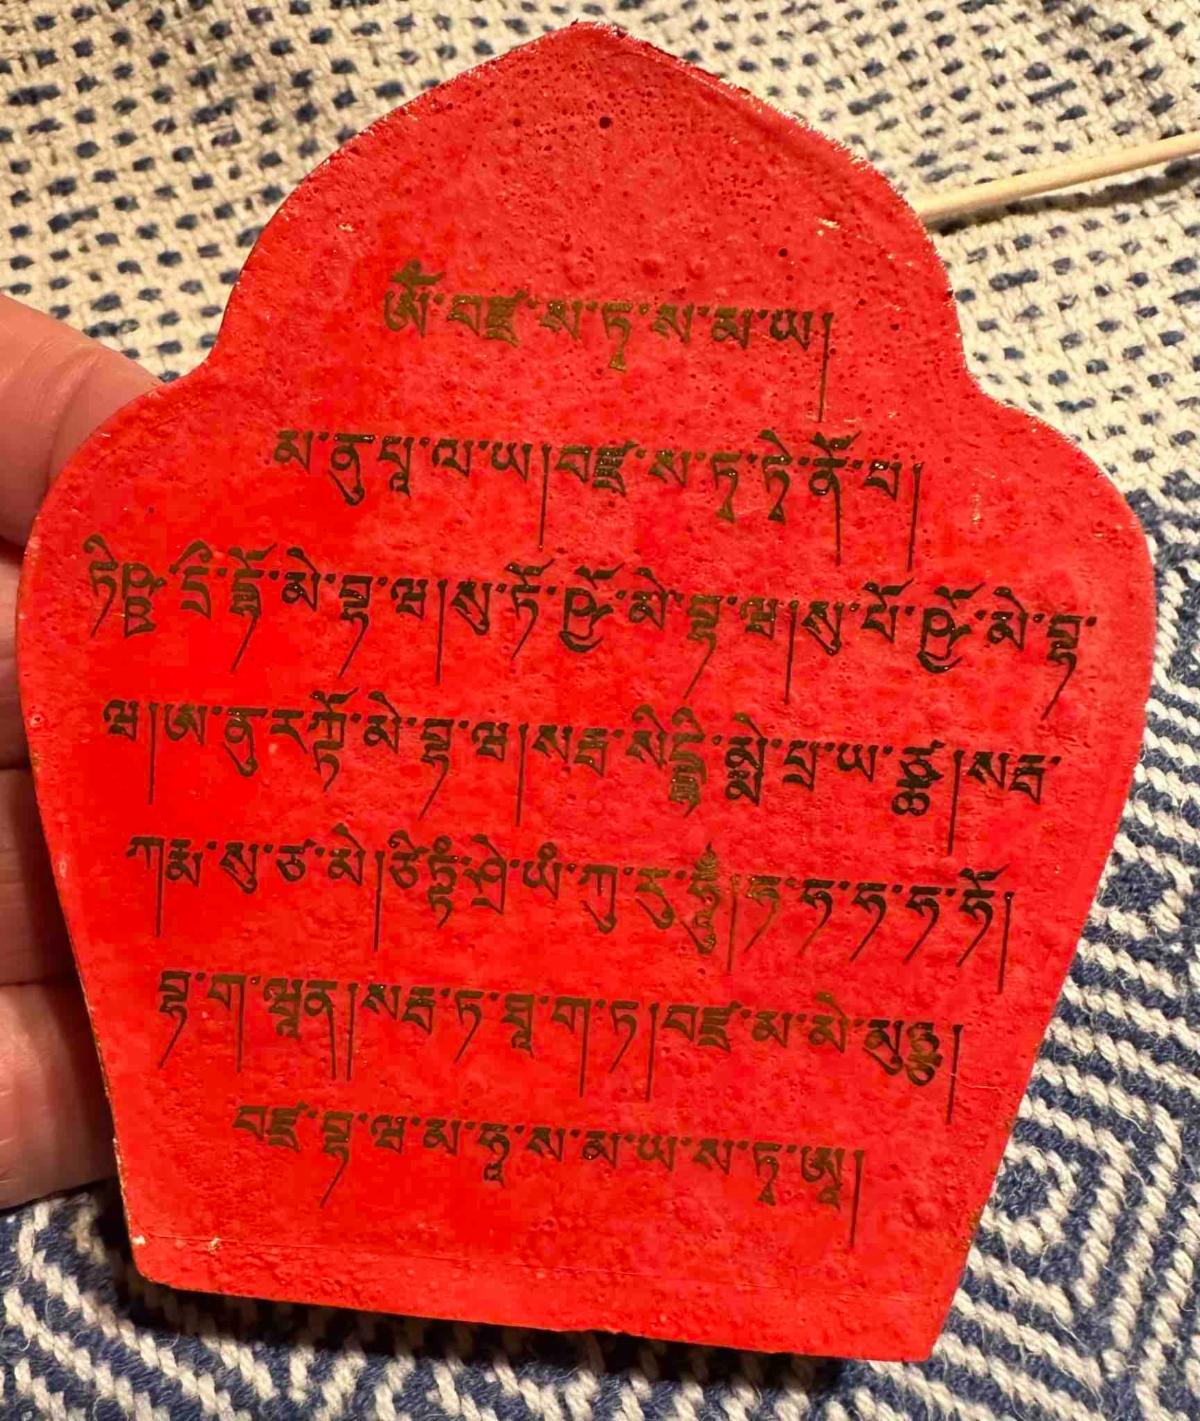 ༀ་བཛྲ་ས་ཏྭ་ས་མ་ཡ།
མ་ནུ་པཱ་ལ་ཡ།བཛྲ་ས་ཏྭ་ཏྭེ་ནོ་པ།
ཏིཥྛ་དྲི་ཌྷོ་མེ་བྷ་ཝ།སུ་ཏོ་ཥྱོ་མེ་བྷ་ཝ།སུ་པོ་ཥྱོ་མེ་བྷ་
ཝ།ཨ་ནུ་རཀྟོ་མེ་བྷ་ཝ།སརྦ་སིདྡྷི་མྨེ་པྲ་ཡ་ཙྪ།སརྦ་
ཀརྨ་སུ་ཙ་མེ།ཙིཏྟཾ་ཤྲེ་ཡཾ་ཀུ་རུ་ཧཱུྃ།ཧ་ཧ་ཧ་ཧ་ཧོ།
བྷ་ག་ཝཱན།སརྦ་ཏ་ཐཱ་ག་ཏ།བཛྲ་མ་མེ་མུཉྩ།
བཛྲ་བྷ་ཝ་མ་ཧཱ་ས་མ་ཡ་ས་ཏྭ་ཨཱ།